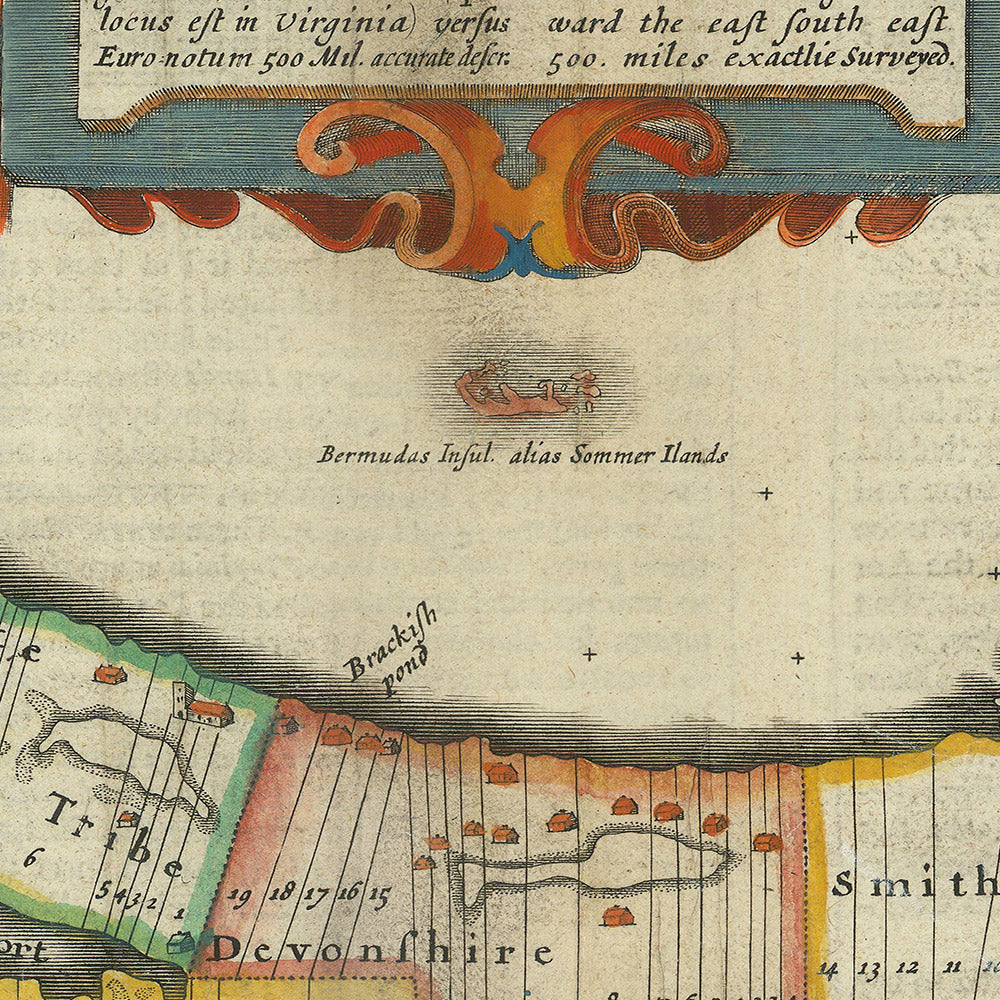 locus eſt in Virginia) verſus
Euro-notum 500 Mil. accurate deſcr.
ward the eaſt ſouth eaſt
500. miles exactlie Surveyed.
Bermudas Inſul. alias Sommer Ilands
Brackiſh
pond
Tribe
6
5 4 3 2 1
19 18 17 16 15
Devonſhire
Smith
14 13 12 11
ort